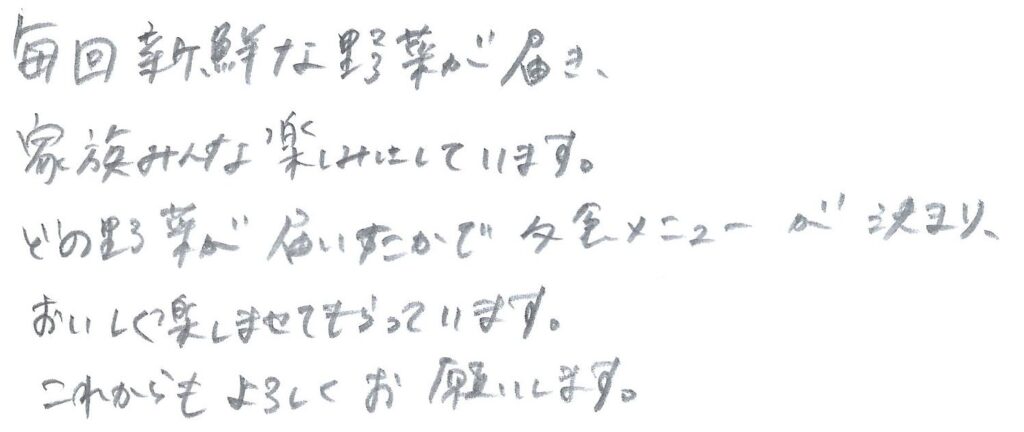 毎回新鮮な野菜が届き、
家族みんな楽しみにしています。
どの野菜が届いたかで夕食メニューが決まり、
おいしく楽しませてもらっています。
これからもよろしくお願いします。